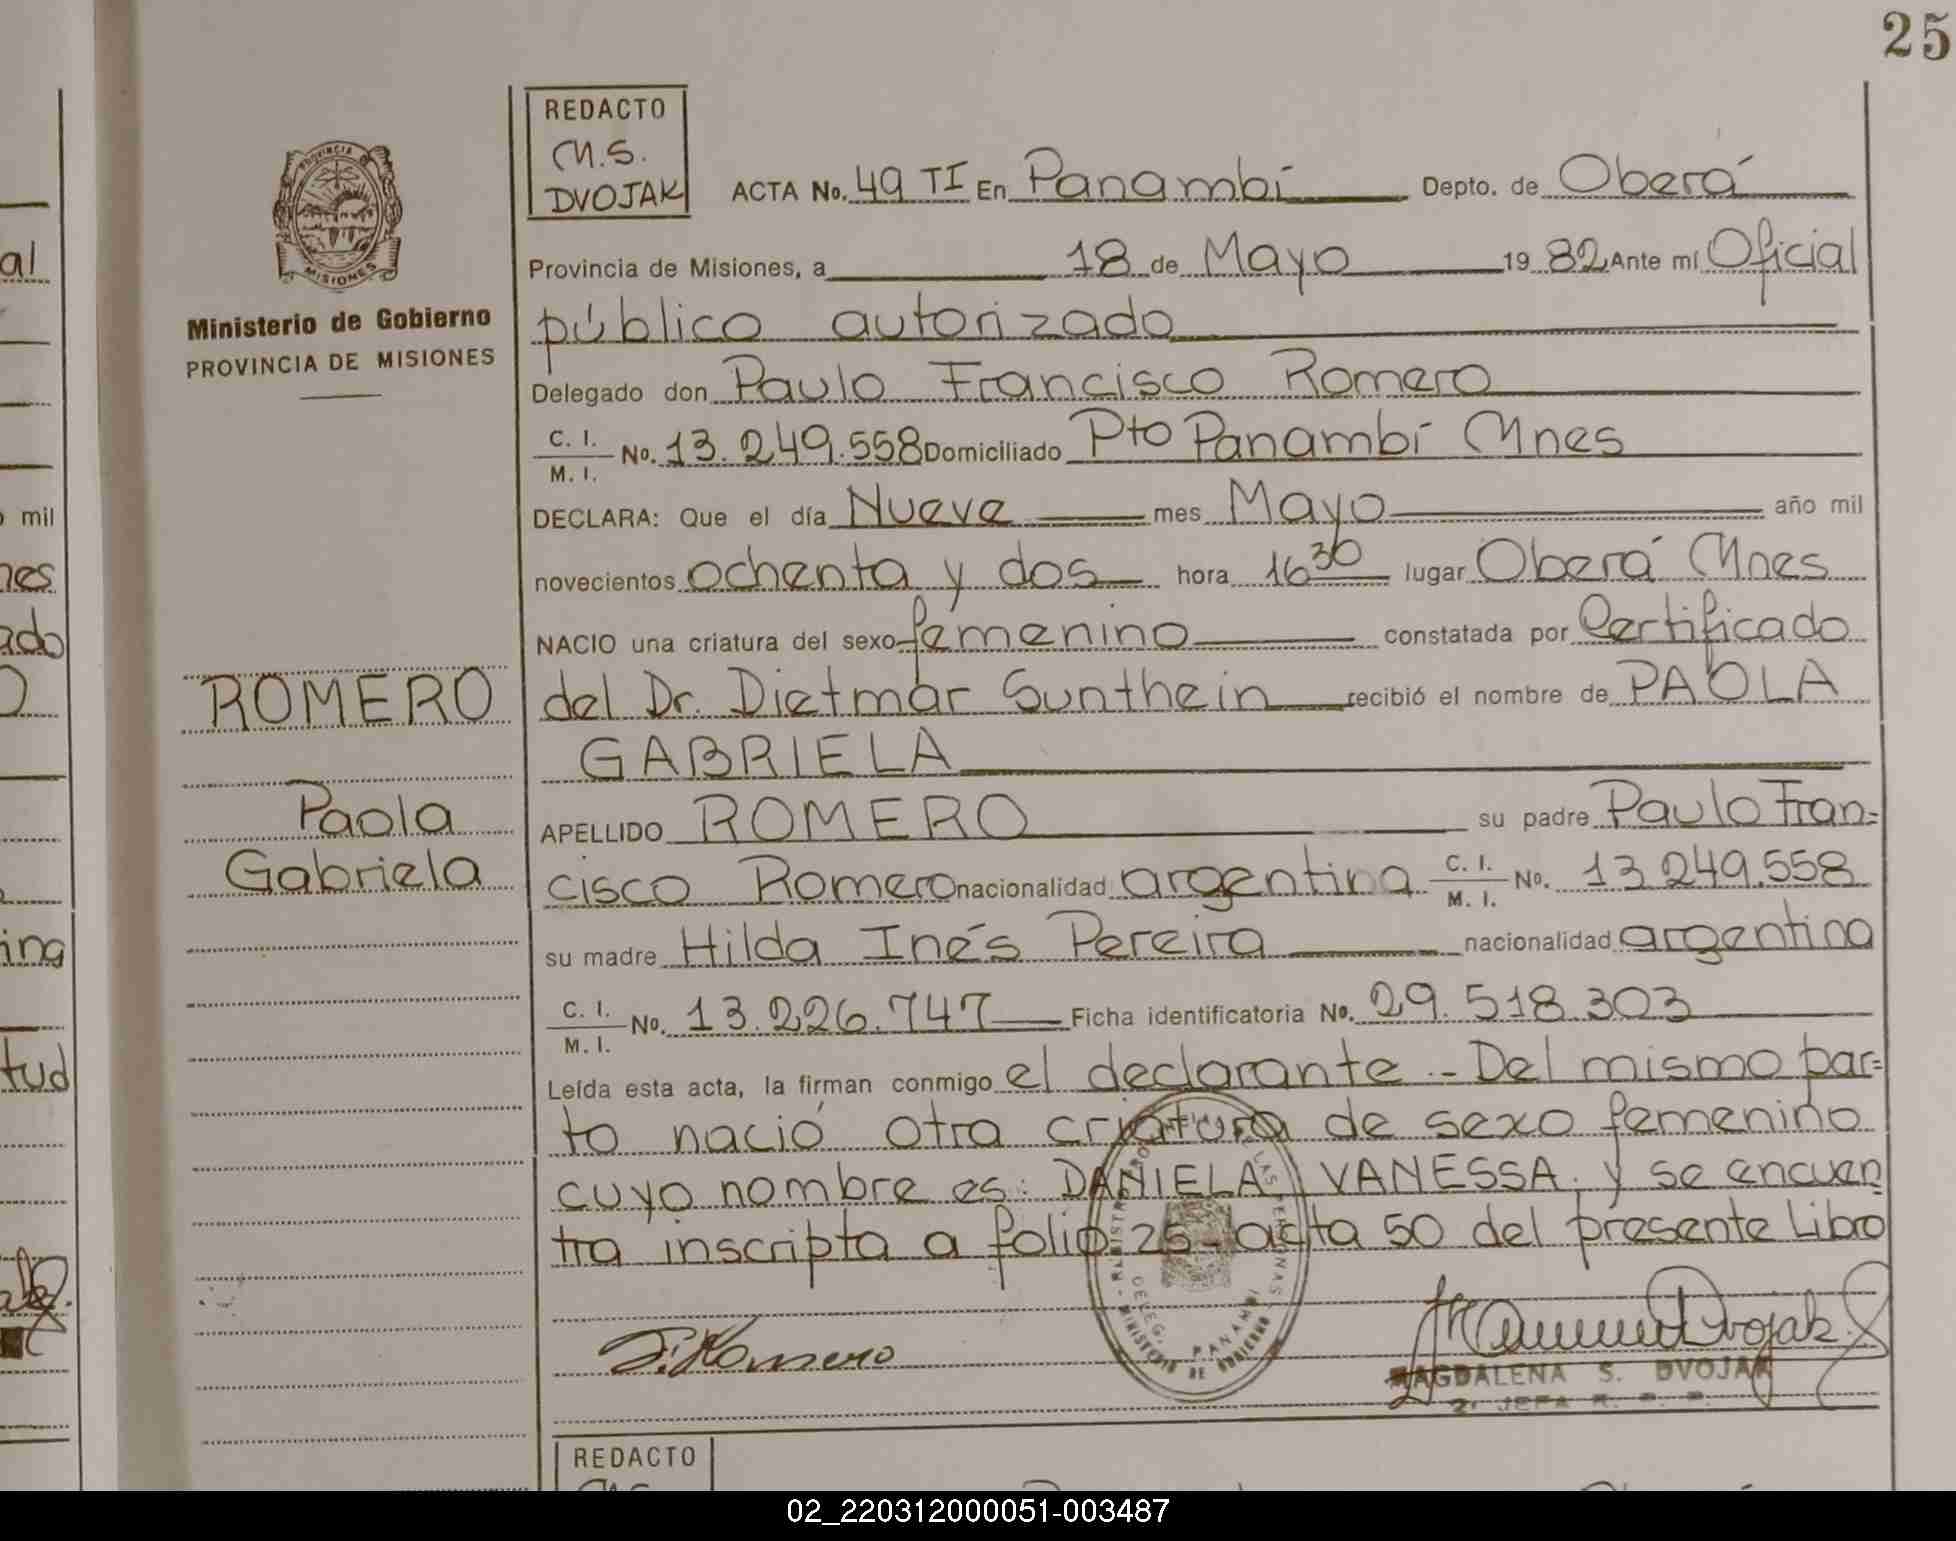 25
REDACTO
M.S.
DVOJAK
ACTA No. 49 TI En Panambí Depto. de Oberá
Provincia de Misiones, a 18 de Mayo 1982 Ante mí Oficial
público autorizado
Delegado don Paulo Francisco Romero
C. I.
M. I.
No. 13.249.558 Domiciliado Pto Panambí Mnes
DECLARA: Que el día Nueve mes Mayo año mil
novecientos ochenta y dos hora 16 30 lugar Oberá Mnes
NACIO una criatura del sexo femenino constatada por Certificado
del Dr. Dietmar Sunthein recibió el nombre de PAOLA
GABRIELA
APELLIDO ROMERO su padre Paulo Fran=
cisco Romero nacionalidad argentina C. I. M. I. No. 13.249.558
su madre Hilda Inés Pereira nacionalidad argentina
C. I. M. I. No. 13.226.747 Ficha identificatoria No. 29.518.303
Leída esta acta, la firman conmigo el declarante.- Del mismo par=
to nació otra criatura de sexo femenino
cuyo nombre es: DANIELA VANESSA, y se encuen
tra inscripta a folio 25- acta 50 del presente Libro
MINISTERIO DE GOBIERNO
DELEG. PANAMBI
Romero
Dvojak
MAGDALENA S. DVOJAK
REDACTO
PROVINCIA
MISIONES
Ministerio de Gobierno
PROVINCIA DE MISIONES
ROMERO
Paola
Gabriela
al
mil
nes
ado
ing
tud
02_220312000051-003487